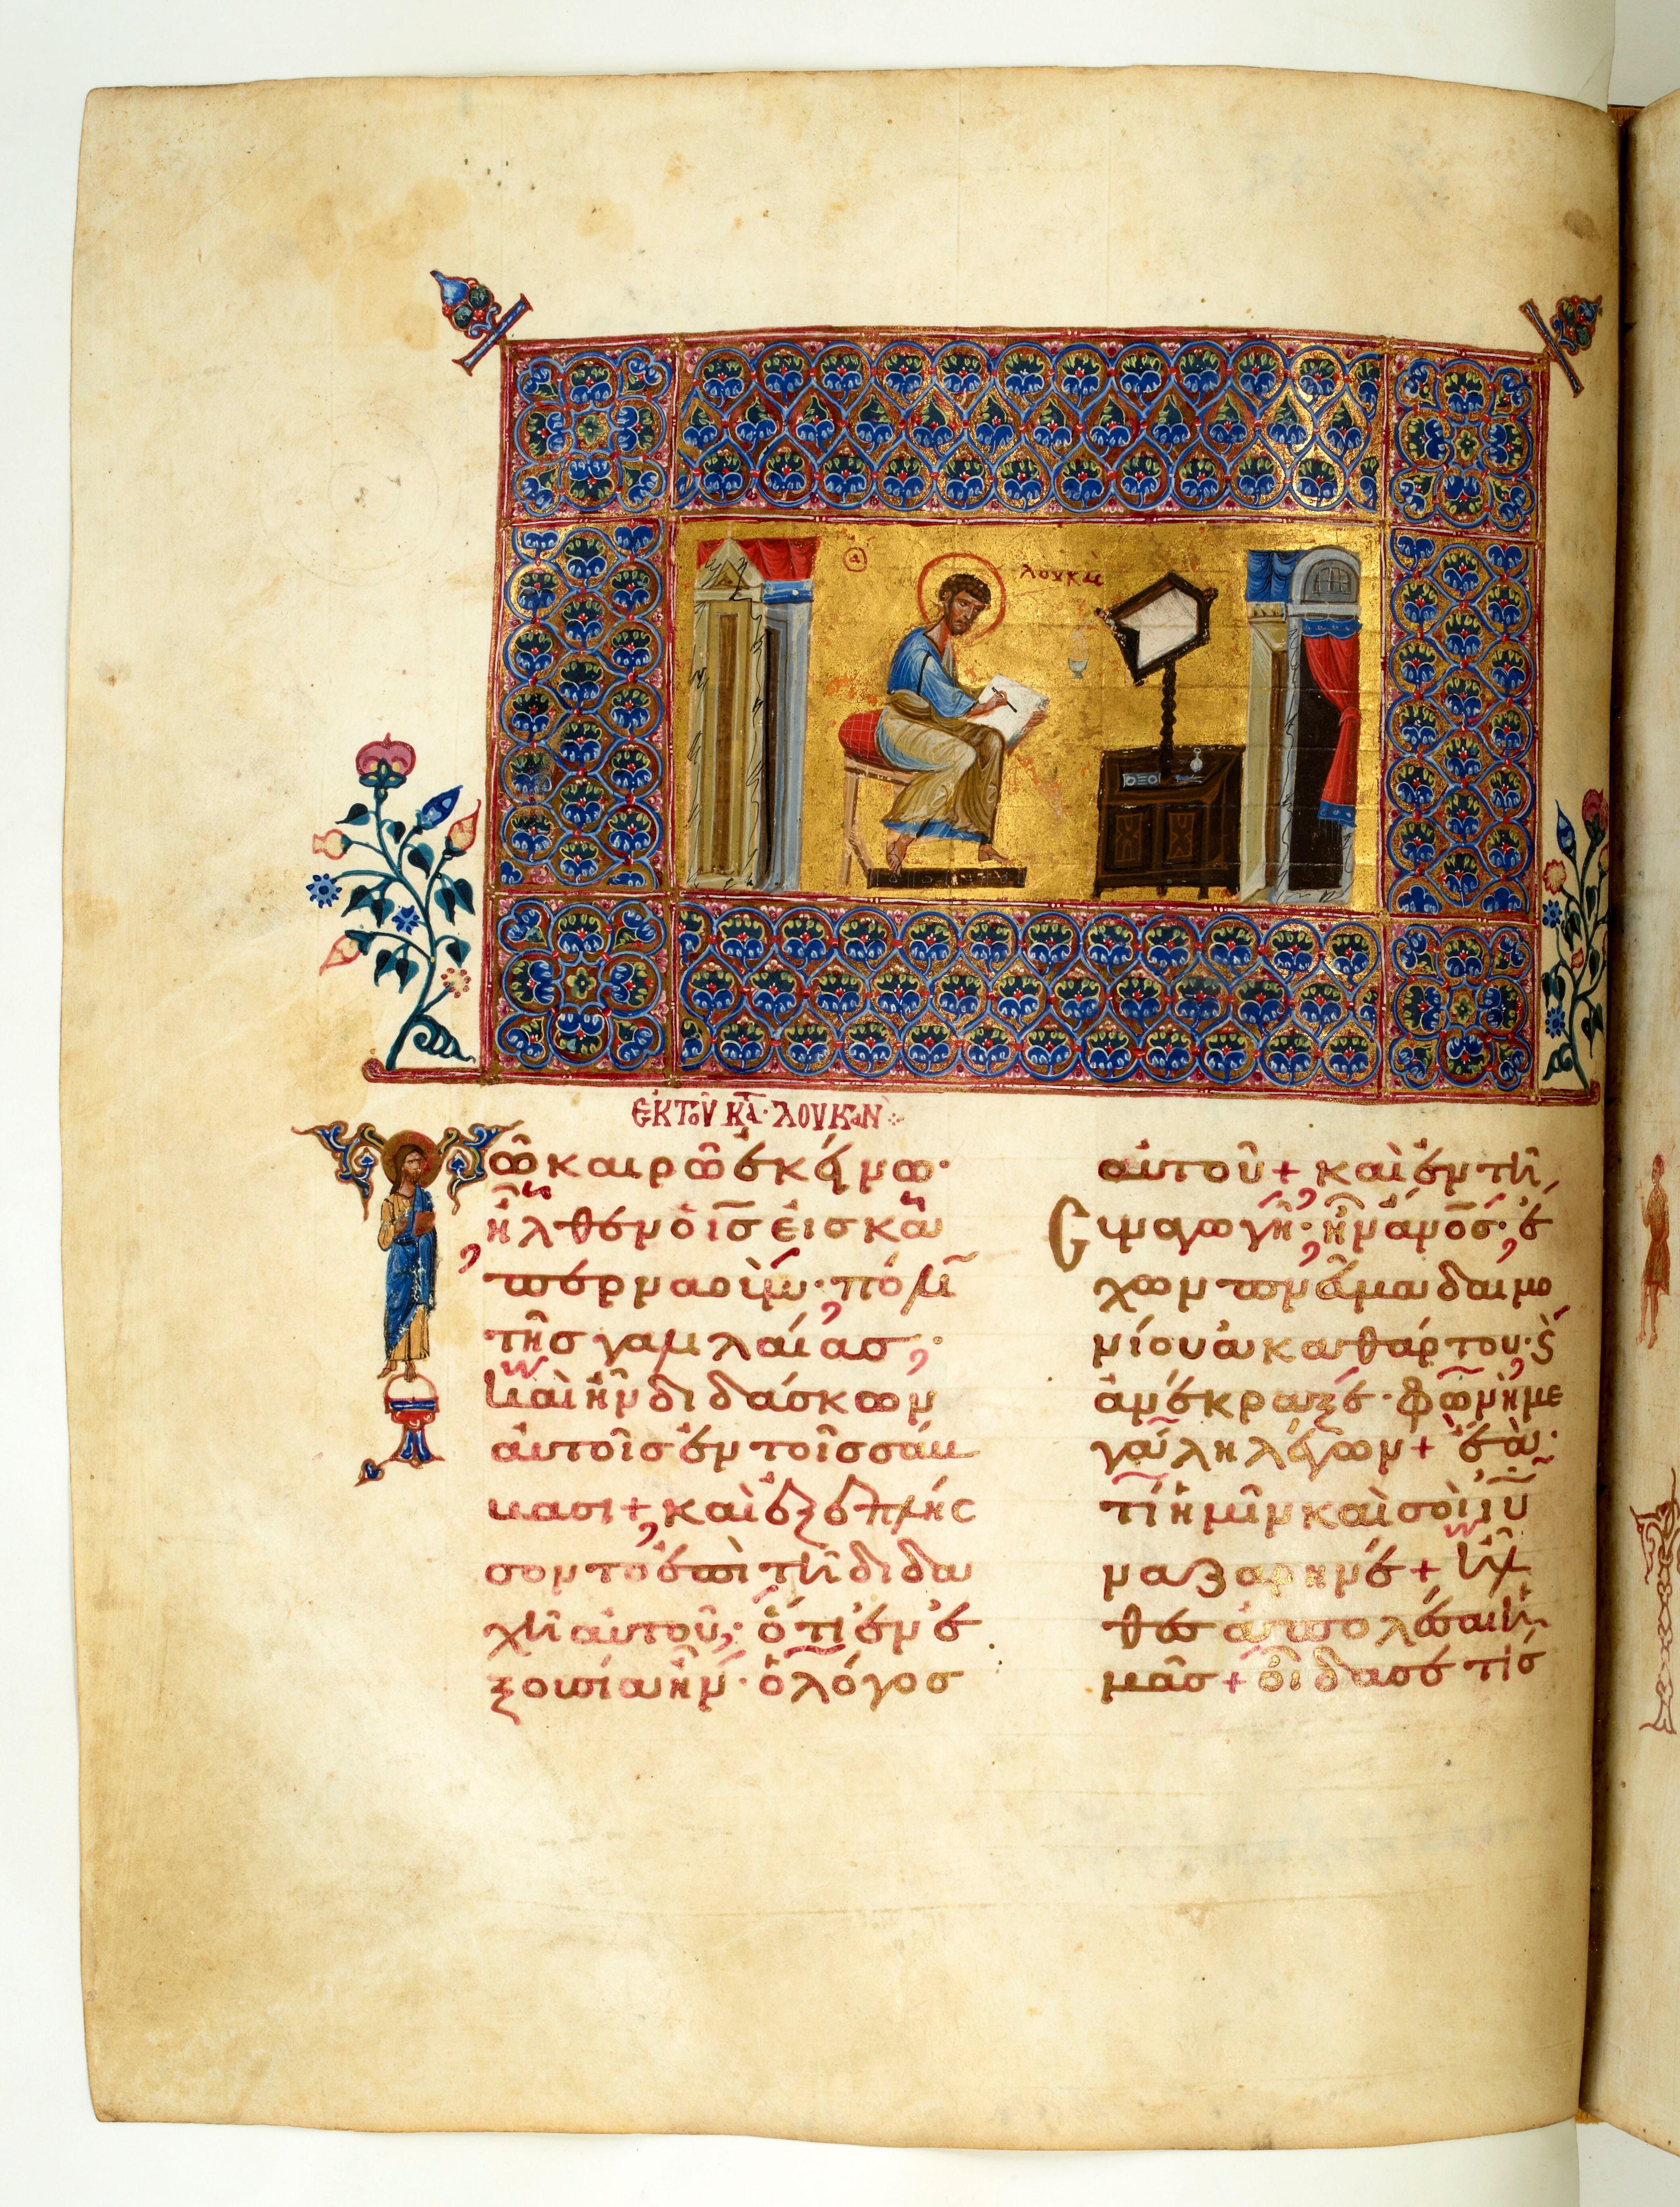 ⓐ ΛΟΥΚᾶς
ἐκ τοῦ κατὰ λουκᾶν
Τῶ καιρῶ ἐκείνω·
ἦλθεν ὁ ις̅ εἰς κα
περναοὺμ· πόλιν
τῆς γαλιλαίας,
καὶ ἦν διδάσκων
αὐτοῖς ἐν τοῖς σάβ
βασι+ καὶ ἐξεπλής
σοντο ἐπὶ τῆ διδα
χῆ αὐτοῦ· ὅτι ἐν ἐ
ξουσία ἦν· ὁ λόγος
αὐτοῦ+ καὶ ἐν τῆ
Cυναγωγῆ· ἦν ἄνο̅ς· ἔ
χων πνεῦμα δαιμο
νίου ἀκαθάρτου· ϗ
ἀνέκραξε· φωνῆ με
γάλη λέγων+ ἔα·
τί ἡμῖν καὶ σοὶ ιυ̅
ναζαρηνέ+ ἦλ
θες ἀπολέσαι ἡ
μᾶς+ οἶδά σε τίς